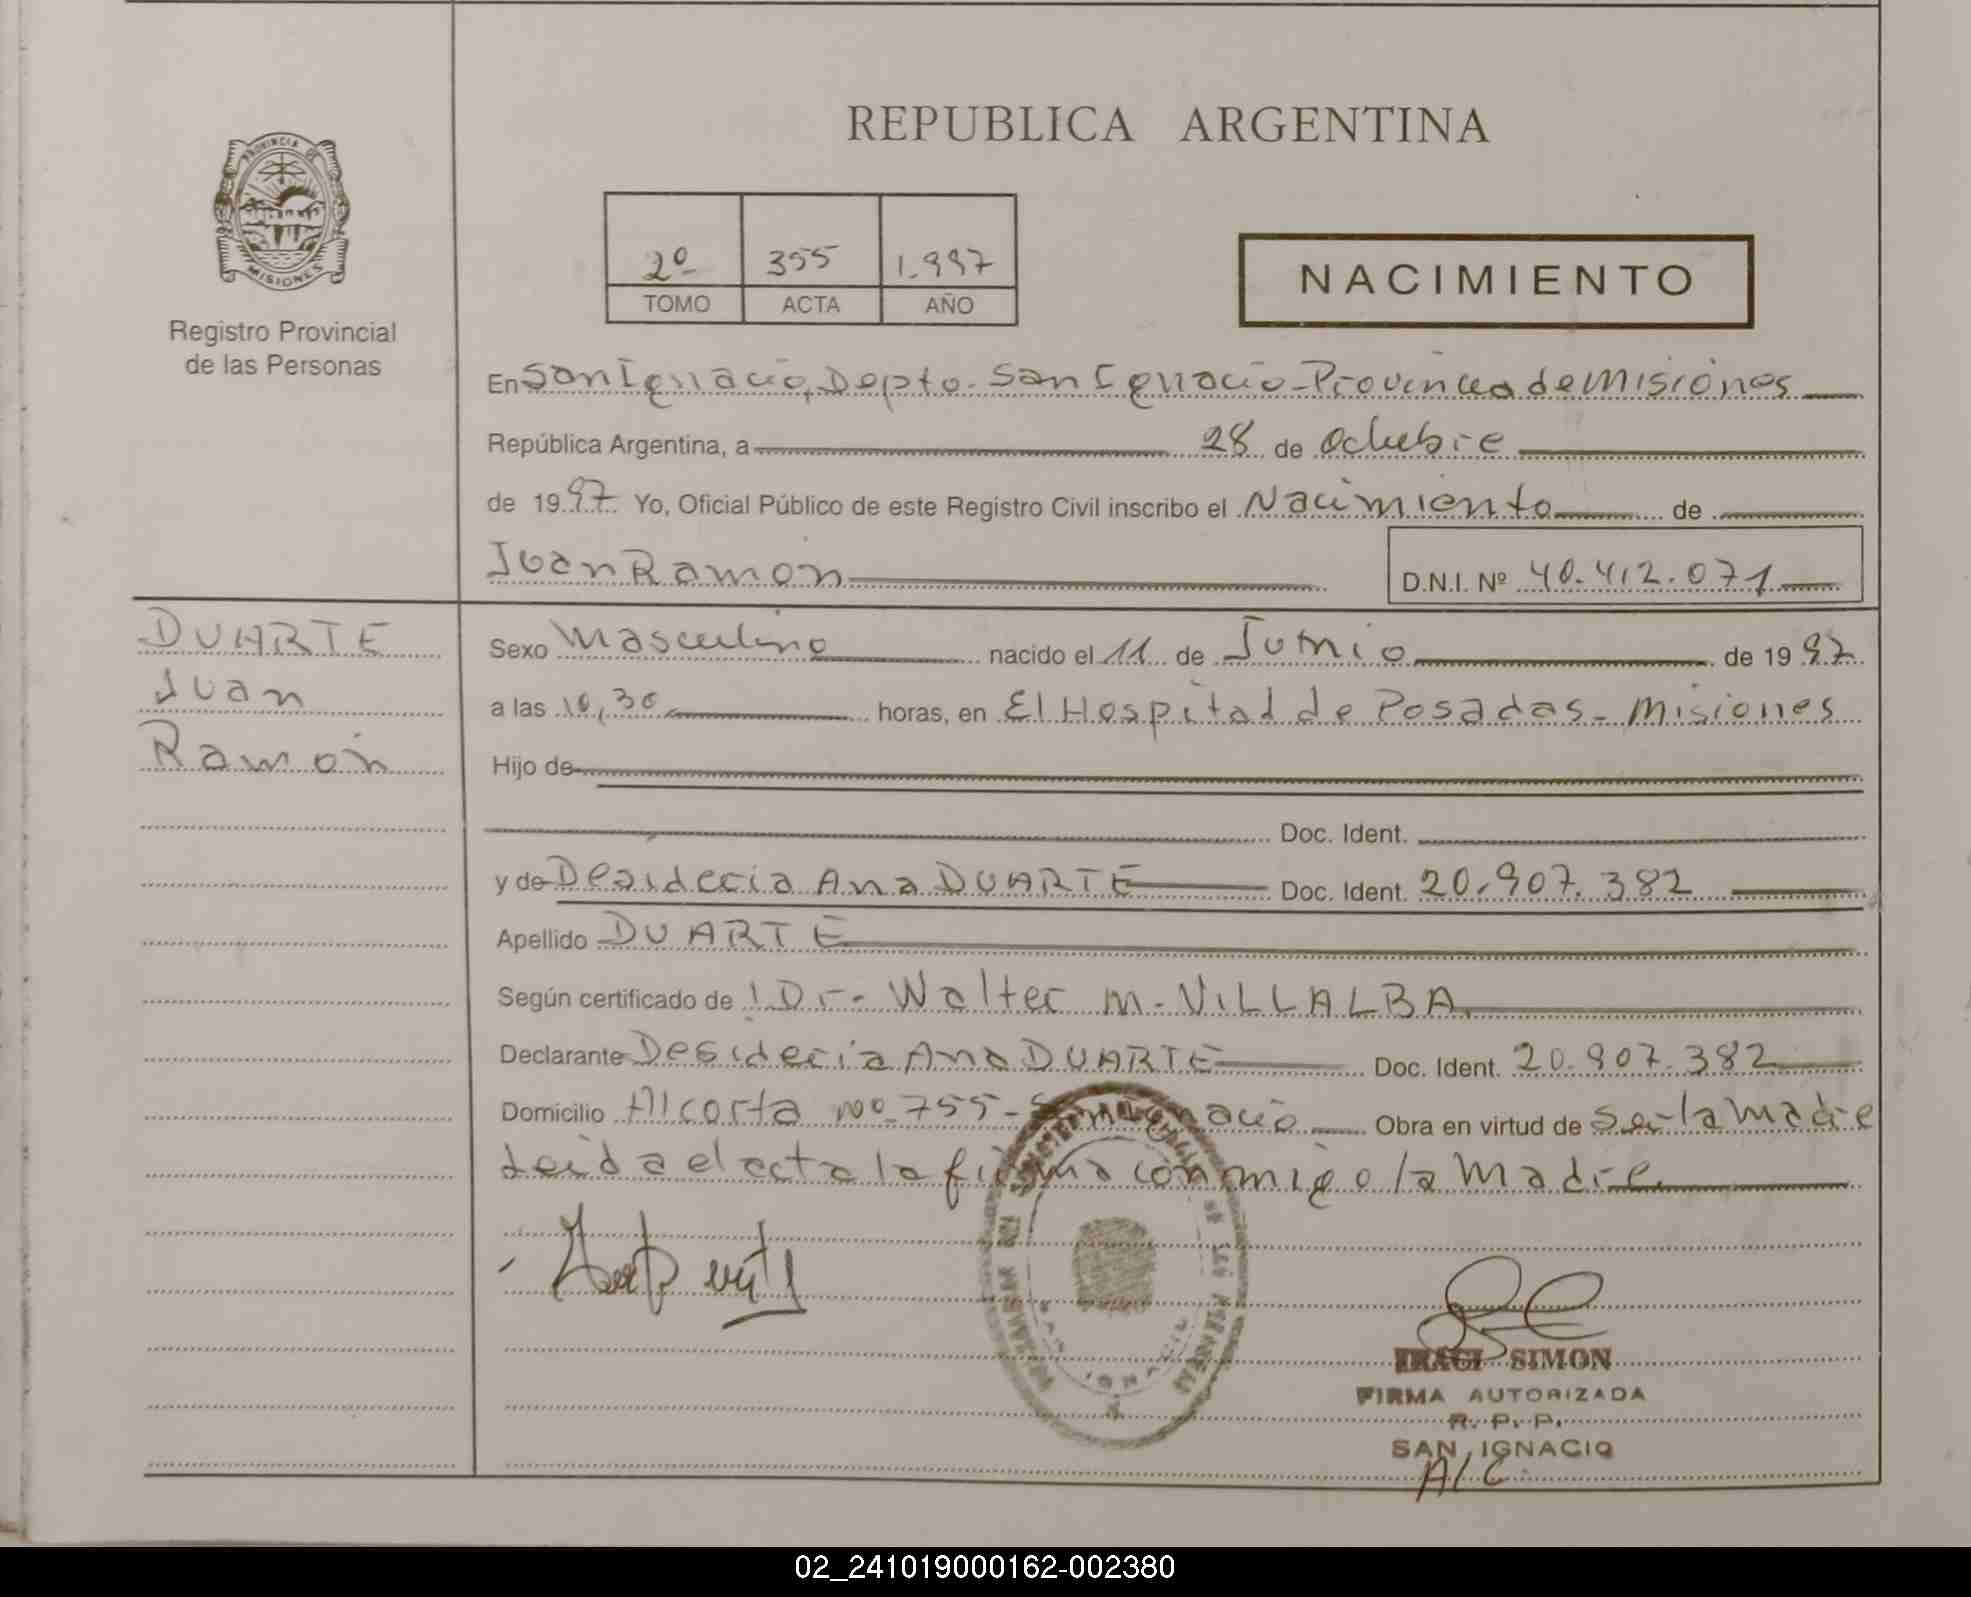 REPUBLICA ARGENTINA
PROVINCIA DE
MISIONES
Registro Provincial
de las Personas
2º 355 1.997
TOMO ACTA AÑO
NACIMIENTO
En San Ignacio, Depto. San Ignacio - Provincia de Misiones
República Argentina, a 28 de Octubre
de 1997 Yo, Oficial Público de este Registro Civil inscribo el Nacimiento de
Juan Ramon D.N.I. Nº 40.412.071
DUARTE
Juan
Ramon
Sexo Masculino nacido el 11 de Junio de 1997
a las 10,30 horas, en El Hospital de Posadas - Misiones
Hijo de
Doc. Ident.
y de Desideria Ana DUARTE Doc. Ident. 20.907.382
Apellido DUARTE
Según certificado de Dr. Walter M. VILLALBA
Declarante Desideria Ana DUARTE Doc. Ident. 20.907.382
Domicilio Alcorta No 755 - San Ignacio Obra en virtud de Ser la Madre
Leida el acta la firma conmigo la Madre.
SAN IGNACIO
SIMON
FIRMA AUTORIZADA
R. P. P.
SAN IGNACIO
A/C
02_241019000162-002380